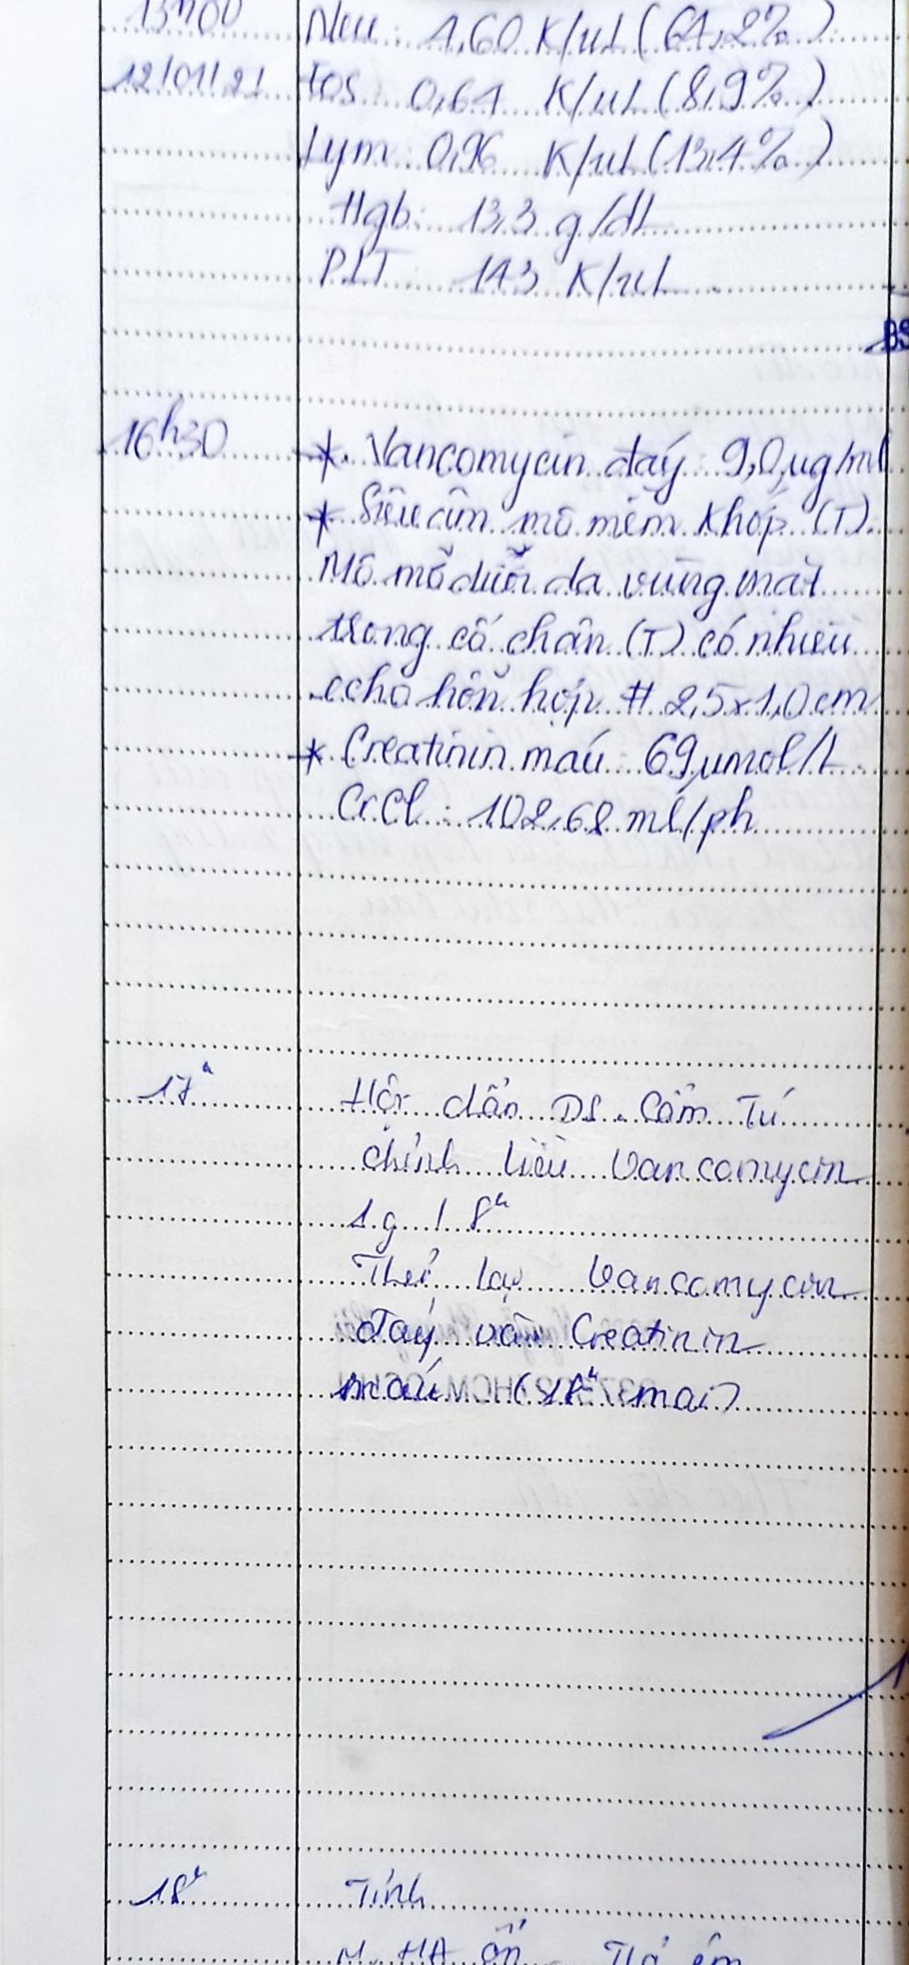 13h00 Neu: 4,60 K/uL (64,2%)
12/01/21 Eos 0,64 K/uL (8,9%)
Lym: 0,96 K/uL (13,4%)
Hgb: 13,3 g/dL
PLT 143 K/uL
BS
16h30 *. Vancomycin đáy: 9,0 µg/ml
* Siêu âm mô mềm khớp (T).
Mô mỡ dưới da vùng mặt
trong cổ chân (T) có nhiều
echo hỗn hợp # 2,5x1,0 cm
* Creatinin máu: 69 µmol/L
CrCl: 102,68 ml/ph
17h Hội chẩn DS. Cẩm Tú
chỉnh liều Vancomycin
1g / 8h
Thử lại Vancomycin
đáy và Creatinin
máu (18h mai)
18h Tỉnh
M, HA ổn